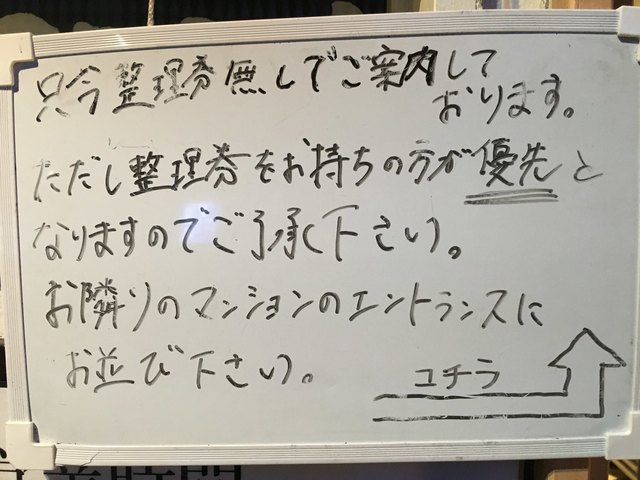 只今整理券無しでご案内して
おります。
ただし整理券をお持ちの方が優先と
なりますのでご了承下さい。
お隣りのマンションのエントランスに
お並び下さい。
コチラ